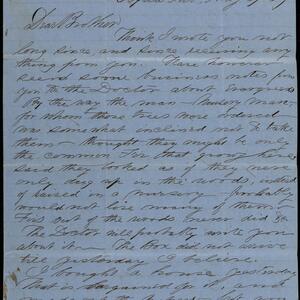 Dear Brother
Think I wrote you not
long since and since receiving any
thing from you. I have however
seen some business notes from
you to the Doctor about Evergreens
By the way the man — Nursery man,
for whom those trees were ordered
was somewhat inclined not to take
them — thought they might be only
the common Fir that grow here
said they looked as if they were
only dug up in the woods, instead
of raised in a nursery — probably
would not live many of them —
Firs out of the woods never did &c
The Doctor will probably write you
about it — The Box did not arrive
till yesterday I believe.
I bought a house yesterday
That is bargained for it, and